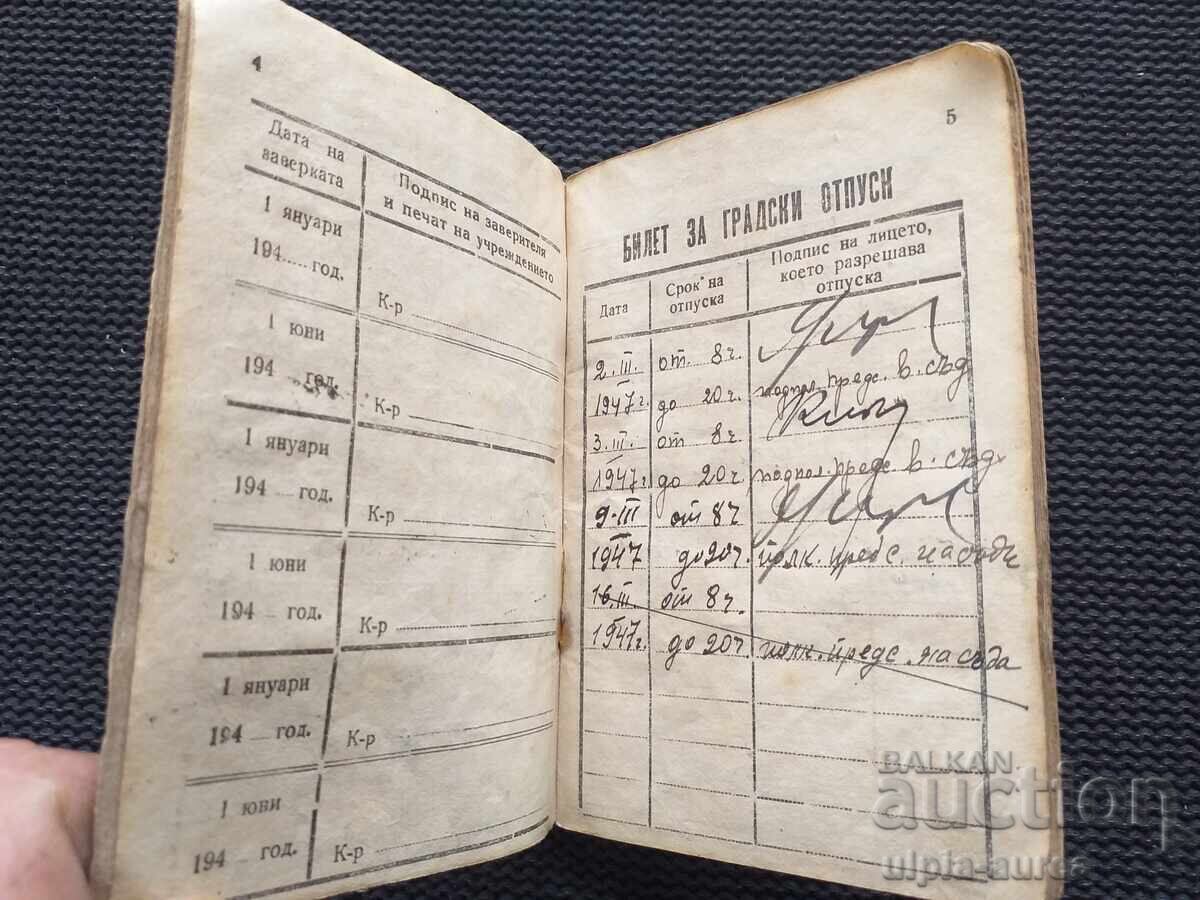 4
Дата на заверката
Подпис на заверителя
и печат на учреждението
1 януари
194 год.
К-р
1 юни
194 год.
К-р
1 януари
194 год.
К-р
1 юни
194 год.
К-р
1 януари
194 год.
К-р
1 юни
194 год.
К-р
5
БИЛЕТ ЗА ГРАДСКИ ОТПУСИ
Дата
Срок на
отпуска
Подпис на лицето,
което разрешава
отпуска
2. III. от 8 ч.
1947 г. до 20 ч. подпол. предс. в. съд
3. III. от 8 ч.
1947 г. до 20 ч. подпол. предс. в. съд.
9. III от 8 ч
1947 до 20 ч. полк. предс. на съда
16. III. от 8 ч.
1947 г. до 20 ч. полк. предс. на съда
BALKAN
auction
ulpia-aurea